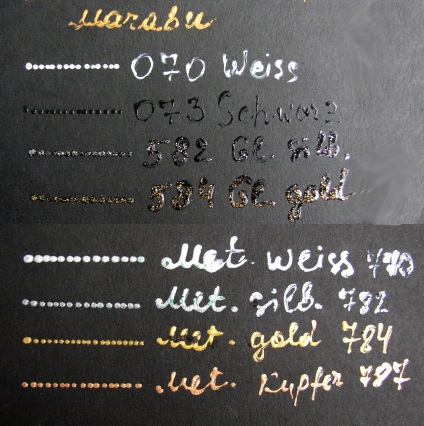 Marabu
070 Weiss
073 Schwarz
582 Gl. silb.
584 Gl. gold
Met. Weiss 770
Met. silb. 782
Met. gold 784
Met. Kupfer 787